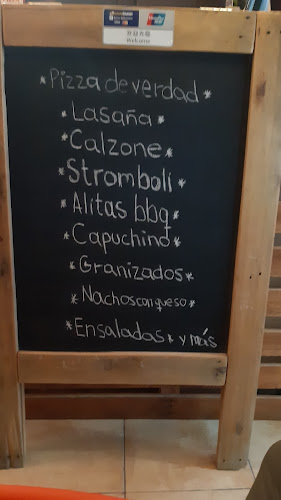 欢迎光临
Welcome
*Pizza de verdad*
*Lasaña*
*Calzone*
*Stromboli*
*Alitas bbq*
*Capuchino*
*Granizados*
*Nachos con queso*
*Ensaladas* y más